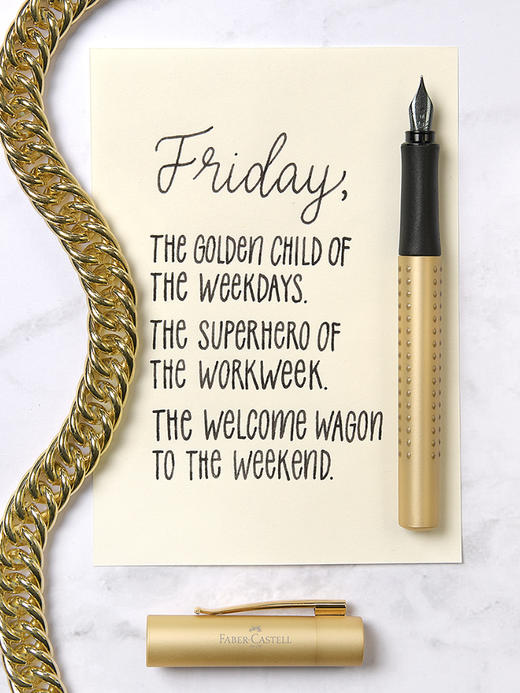 Friday,
THE GOLDEN CHILD OF
THE WEEKDAYS.
THE SUPERHERO OF
THE WORKWEEK.
THE WELCOME WAGON
TO THE WEEKEND.
FABER-CASTELL